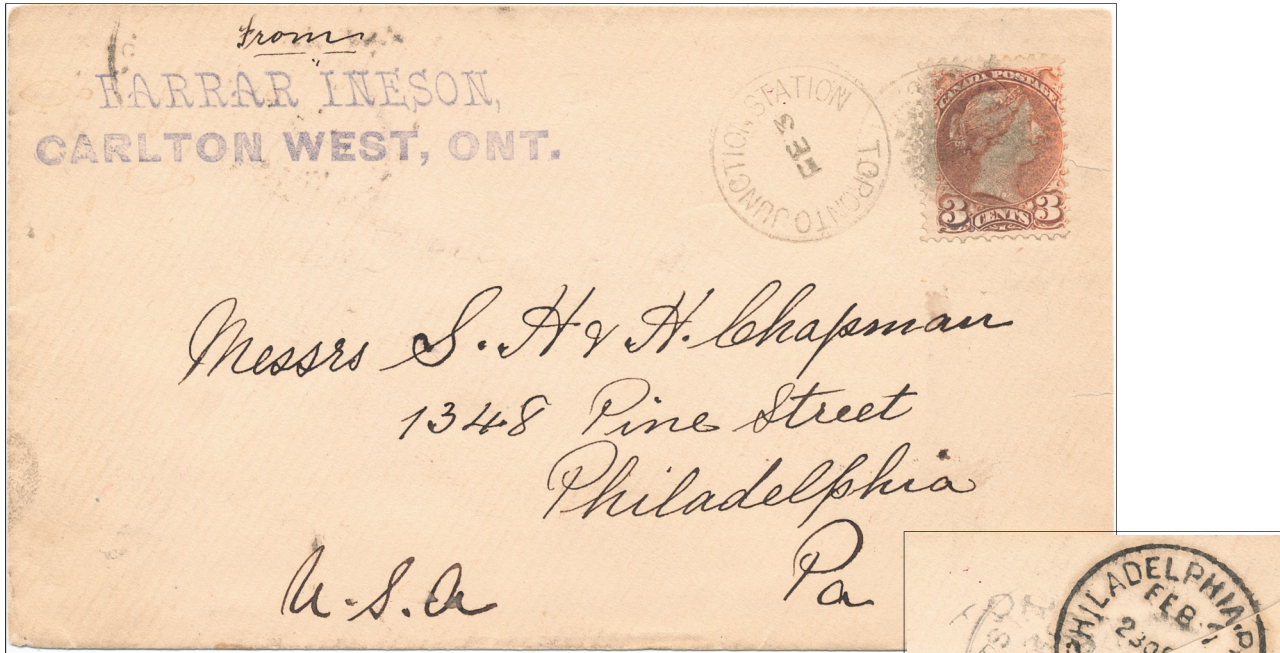 From
FARRAR INESON,
CARLTON WEST, ONT.
TORONTO JUNCTION STATION
FE 3
CANADA POSTAGE
3 CENTS 3
Messrs S. H & H. Chapman
1348 Pine Street
Philadelphia
Pa
U.S.A
PHILADELPHIA, P
FEB 7